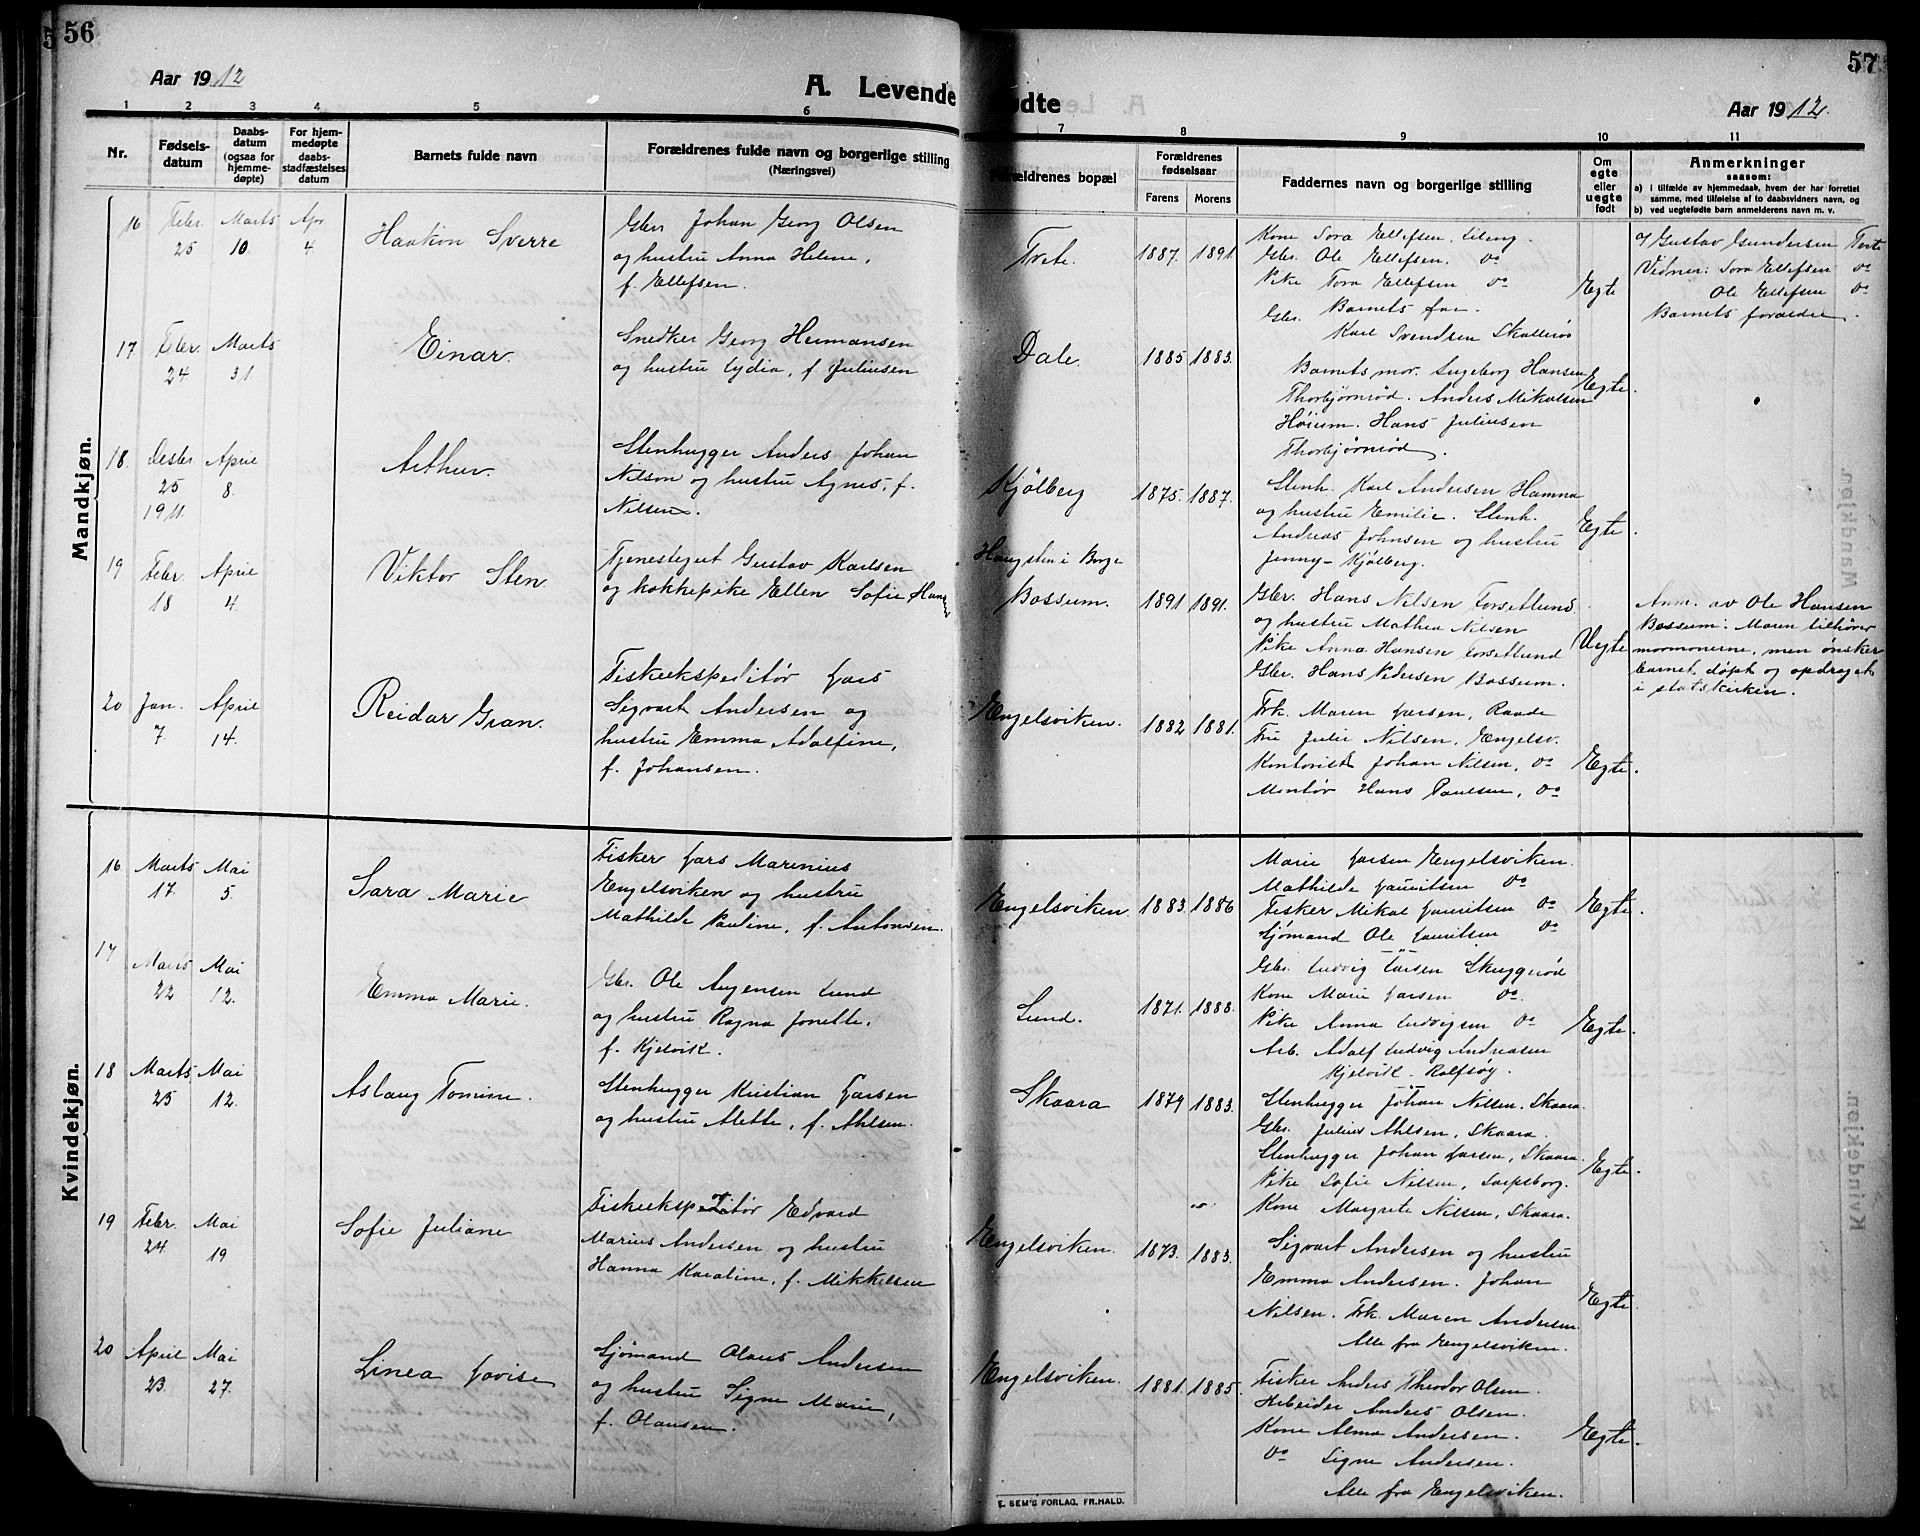 56
Aar 1912
A. Levende
1 2 3 4 5 6
Nr.
Fødsels-
datum
Daabs-
datum
(ogsaa for
hjemme-
døpte)
For hjem-
medøpte
daabs-
stadfæstelses
datum
Barnets fulde navn
Forældrenes fulde navn og borgerlige stilling
(Næringsvei)
Mandkjøn.
16 Febr. 25 Marts 10 Apr 4
Haakon Sverre
Gbr. Johan Georg Olsen
og hustru Anna Helene,
f. Ellefsen.
17 Febr. 24 Marts 31
Einar.
Snedker Georg Hermansen
og hustru Lydia, f. Juliusen
18. Desbr 25 1911. April 8.
Arthur.
Stenhugger Anders Johan
Nilson og hustru Agnes, f.
Nilsen.
19 Febr. 18 April 4.
Viktor Sten
Tjenestegut Gustav Karlsen
og kokkepike Ellen Sofie Hansen
20 Jan. 7. April 14.
Reidar Gran.
Fiskeekspeditør Lars
Sigvart Andersen og
hustru Emma Adolfine,
f. Johansen.
Kvindekjøn.
16 Marts 17. Mai 5.
Sara Marie
Fisker Lars Marenius
Engelsviken og hustru
Mathilde Pauline, f. Antonsen.
17 Marts 22 Mai 12.
Emma Marie.
Gbr. Ole Augensen Lund
og hustru Ragna Jonette,
f. Kjelvik.
18 Marts 25 Mai 12.
Aslaug Tomine.
Stenhugger Kristian Larsen
og hustru Alette, f. Ahlsen.
19 Febr. 24. Mai 19
Sofie Juliane
Fiskeekspeditør Edvard
Marius Andersen og hustru
Hanna Karoline, f. Mikkelsen
20 April 23. Mai 27.
Linea Lovise
Sjømand Olaus Andersen
og hustru Signe Marie,
f. Olausen.
57
ødte
Aar 1912.
7 8 9 10 11
Forældrenes bopæl
Forældrenes
fødselsaar
Farens Morens
Faddernes navn og borgerlige stilling
Om
egte
eller
uegte
født
Anmerkninger
saasom:
a) i tilfælde av hjemmedaab, hvem der har forrettet
samme, med tilføielse af to daabsvidners navn, og
b) ved uegtefødte barn anmelderens navn m. v.
Tvete. 1887. 1891.
Kone Tora Ellefsen, Liteng.
Gbr. Ole Ellefsen. Do
Pike Tora Ellefsen Do
Gbr. Barnets far.
Karl Svendsen Skallerös
Egte
af Gustav Gundersen Tvete
Vidner: Tora Ellefsen Do
Ole Ellefsen Do
Barnets forældre.
Dale. 1885 1883.
Barnets mor. Ingeborg Hansen
Thorbjørnrød. Anders Mikalsen
Høium. Hans Juliusen
Thorbjørnrød.
Egte.
Kjølberg 1875. 1887.
Stenh. Karl Andersen Hamna
og hustru Emilie. Stenh.
Andreas Johnsen og hustru
Jenny - Kjølberg.
Egte.
Haugsten i Borge
Bossum. 1891 1891.
Gbr. Hans Nilsen Torsetlund
og hustru Mathea Nilsen
Pike Anna Hansen Torsetlund
Gbr. Hans Pedersen Bossum.
Uegte
Anm. av Ole Hansen
Bossum. Moren tilhører
mormonerne, men ønsker
barnet døpt og opdraget
i statskirken.
Engelsviken. 1882 1881.
Frk. Maren Larsen, Raade
Fru Julie Nilsen, Engelsv.
Kontorist Johan Nilsen, Do
Montør Hans Paulsen, Do
Egte.
Engelsviken 1883. 1886
Marie Larsen Engelsviken.
Mathilde Lauritsen Do
Fisker Mikal Lauritsen Do
Sjømand Ole Lauritsen Do
Egte.
Lund. 1871. 1888.
Gbr. Ludvig Larsen Skuggerød
Kone Marie Larsen Do.
Pike Anna Ludvigsen Do
Arb. Adolf Ludvig Andreasen
Kjelvik - Rolfsøy.
Egte.
Skaara 1879 1883.
Stenhugger Johan Nilsen. Skaara.
Gbr. Julius Ahlsen, Skaara.
Stenhugger Johan Larsen, Skaara.
Pike Sofie Nilsen, Sarpsborg.
Kone Margrete Nilsen, Skaara.
Egte.
Engelsviken. 1873. 1883.
Sigvart Andersen og hustru
Emma Andersen. Johan
Nilsen. Frk. Maren Andersen.
Alle fra Engelsviken.
Egte.
Engelsviken. 1881. 1885.
Fisker Anders Theodor Olsen.
Arbeider Anders Olsen.
Kone Alma Andersen.
Do Signe Andersen.
Alle fra Engelsviken.
Egte.
E. SEM'S FORLAG, FR.HALD.